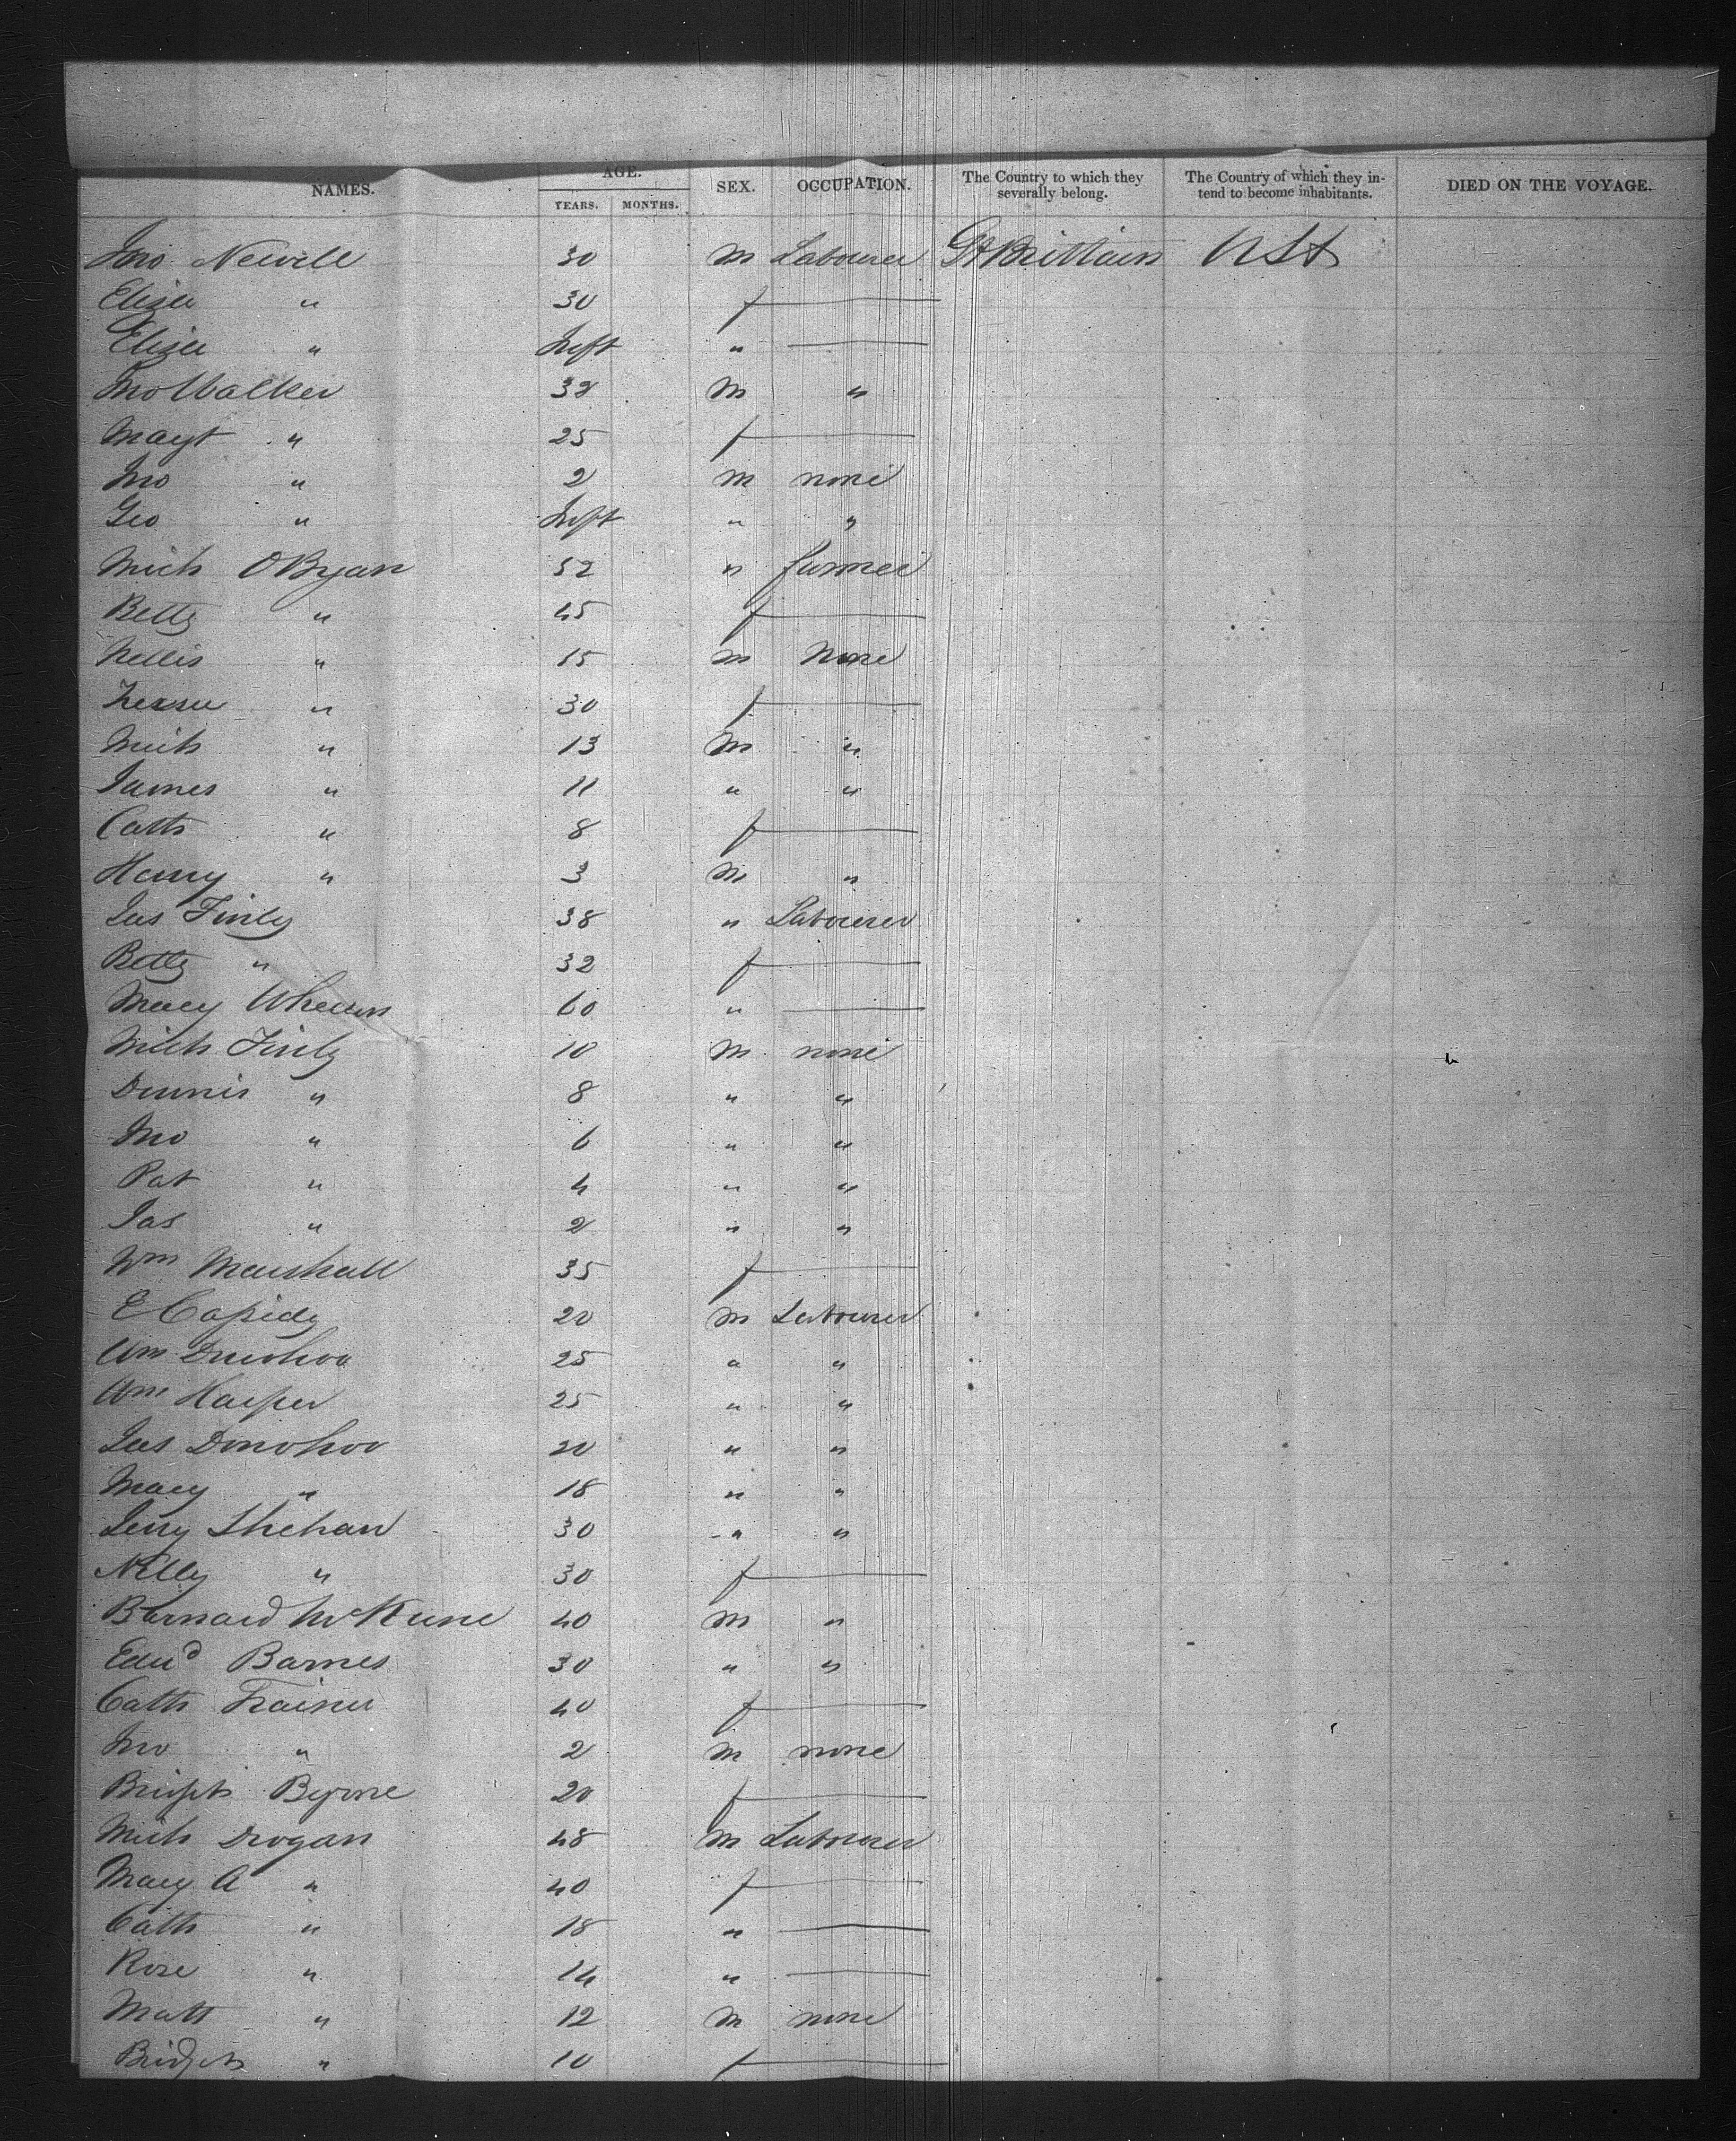 NAMES. AGE. YEARS. MONTHS. SEX. OCCUPATION. The Country to which they severally belong. The Country of which they intend to become inhabitants. DIED ON THE VOYAGE.
Jno Nevill 30 m Labourer Gt Brittain USA
Eliza " 30 f —
Eliza " Inft " —
Jno Walker 32 m "
Magt " 25 f —
Jno " 2 m none
Geo " Inft " "
Mich OByan 52 " farmer
Betty " 45 f —
Nellis " 15 m None
" 30 f —
Mich " 13 m "
James " 11 " "
Cath " 8 f —
Harry " 3 m "
Jas Finly 38 " Labourer
Betty " 32 f —
Mary Whelan 60 " —
Mich Finly 10 m none
Dennis " 8 " "
Jno " 6 " "
Pat " 4 " "
Jas " 2 " "
Wm Marshall 35 f —
E Cassidy 20 m Labourer
Wm Donohoo 25 " "
Wm Harper 25 " "
Jas Donohoo 20 " "
Mary " 18 " "
Jerry Shehan 30 " "
Nelly " 30 f —
Barnard McKune 40 m "
Edwd Barnes 30 " "
Cath Trainer 40 f —
Jno " 2 m none
Bridgt Byrne 20 f —
Mich Drogan 48 m Labourer
Mary A " 40 f —
Cath " 18 " —
Rose " 14 " —
Matt " 12 m none
Bridget " 10 f —